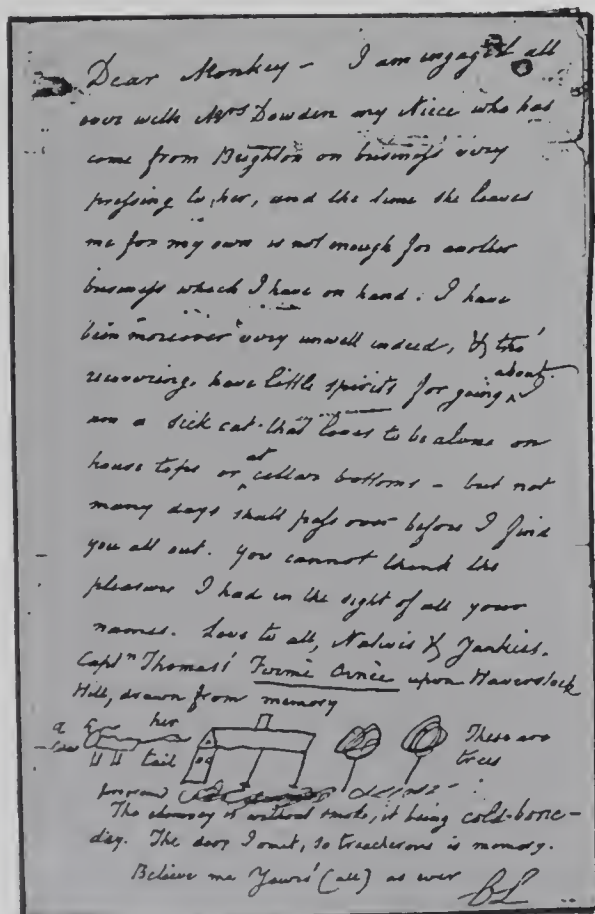 Dear Monkey - I am engaged all
over with Mrs Dowden my Niece who has
come from Brighton on business very
pressing to her, and the time she leaves
me for my own is not enough for another
business which I have on hand. I have
been moreover very unwell indeed, & tho'
recovering, have little spirits for going about. I
am a sick cat that loves to be alone on
house tops or at cellar bottoms - but not
many days shall pass over before I find
you all out. You cannot think the
pleasure I had in the sight of all your
names. Love to all, Natives & Yankies.
Captn Thomas' Fermé Ornée upon Haverstock
Hill, drawn from memory
a cow her tail
These are trees
ground
The chimney is without smoke, it being cold-bone-
day. The door I omit, so treacherous is memory.
Believe me Yours' (all) as ever